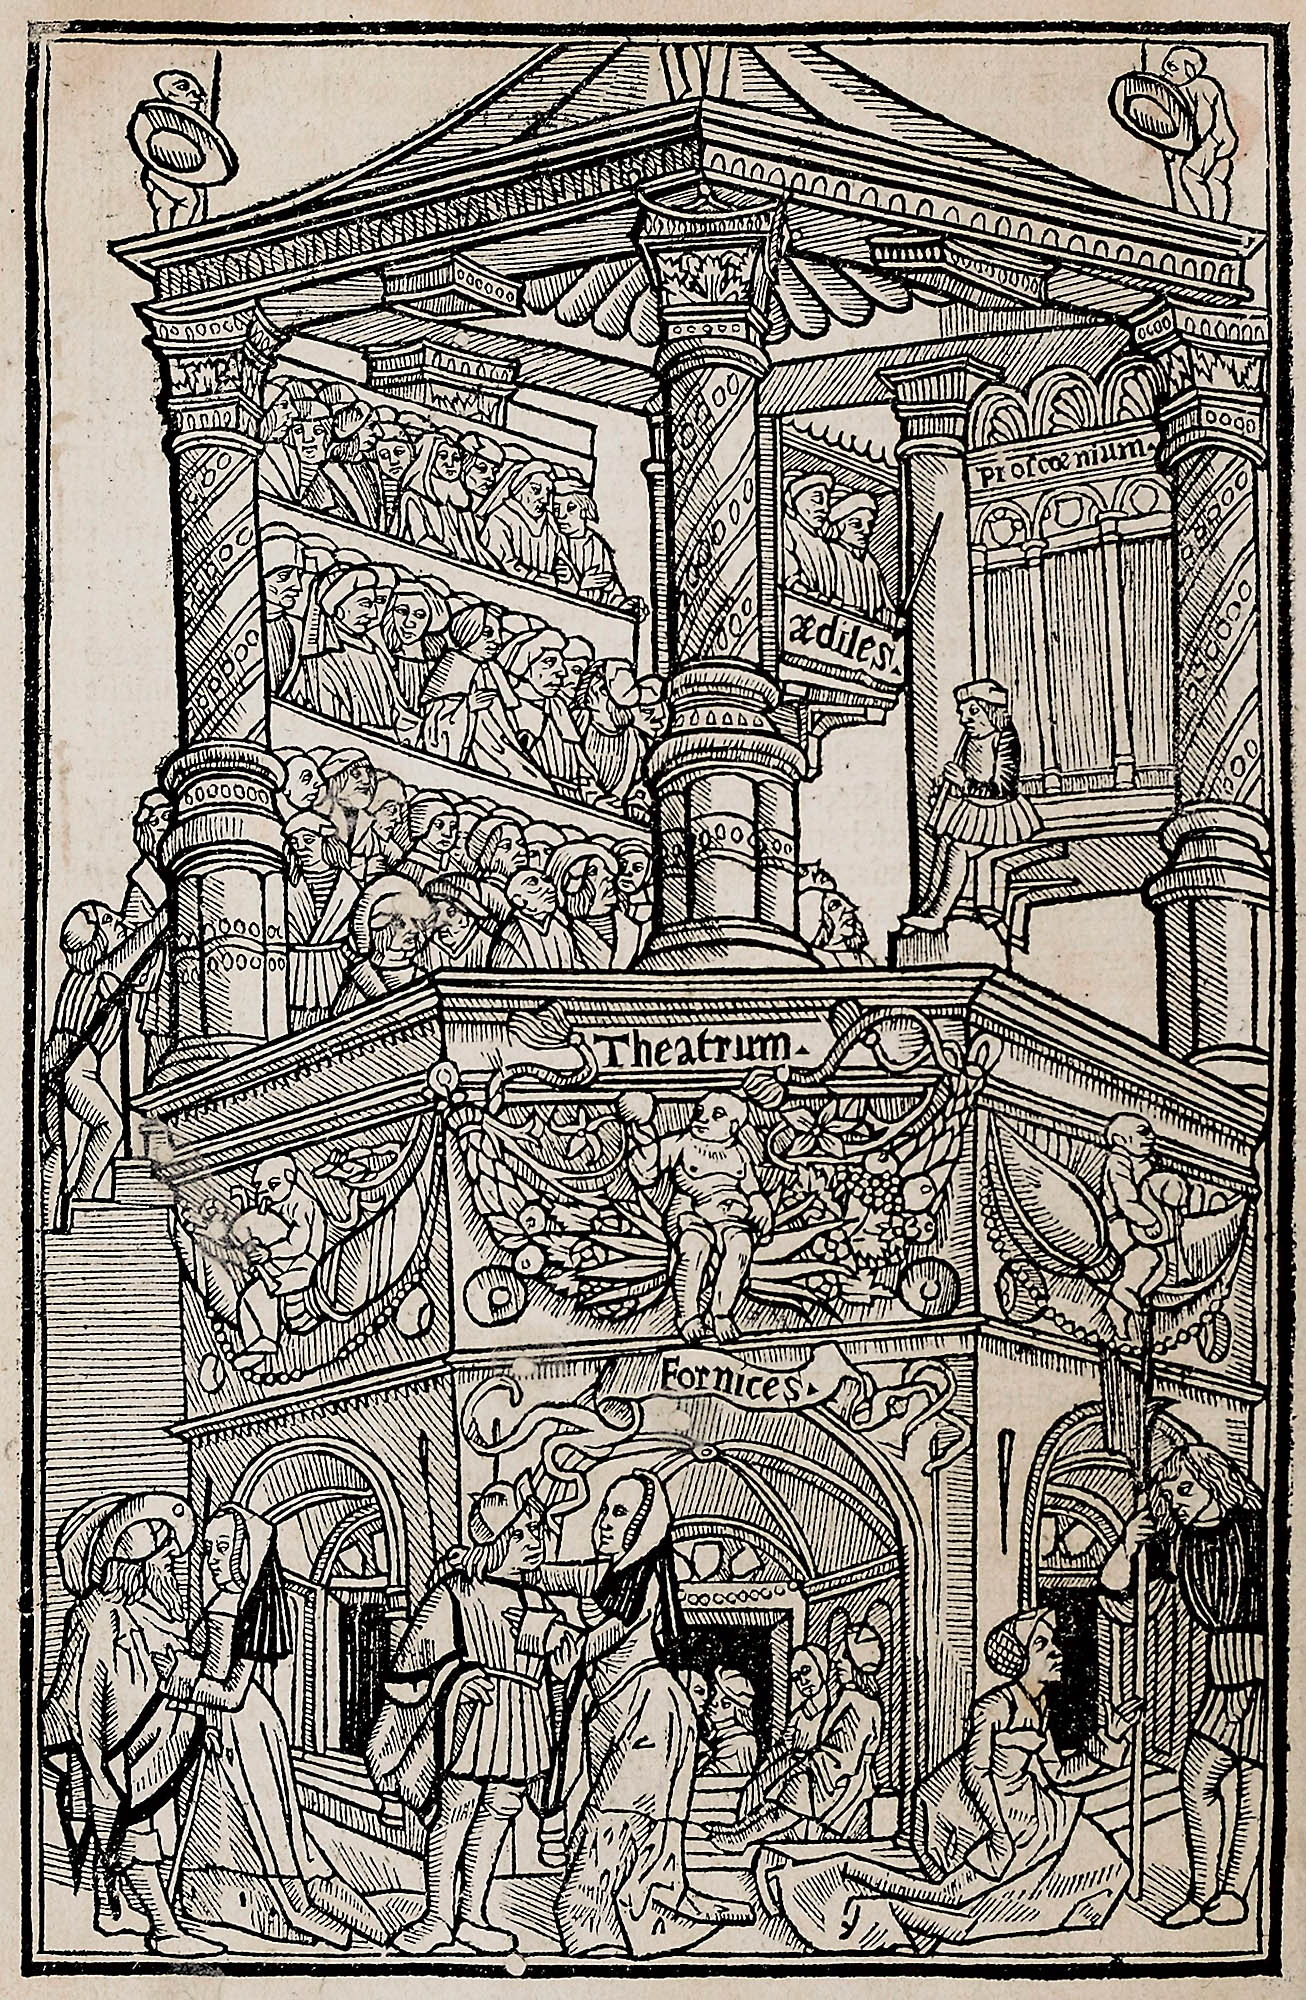 Proscœnium.
ædiles.
Theatrum.
Fornices.